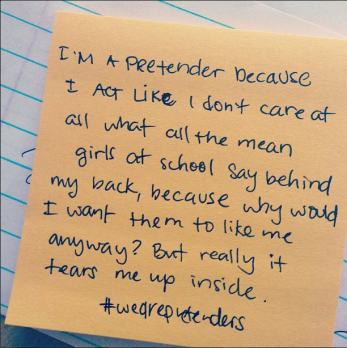 I'M A PRETENDER because
I ACT LIKE I don't care at
all what all the mean
girls at school say behind
my back, because why would
I want them to like me
anyway? But really it
tears me up inside.
#wearepretenders